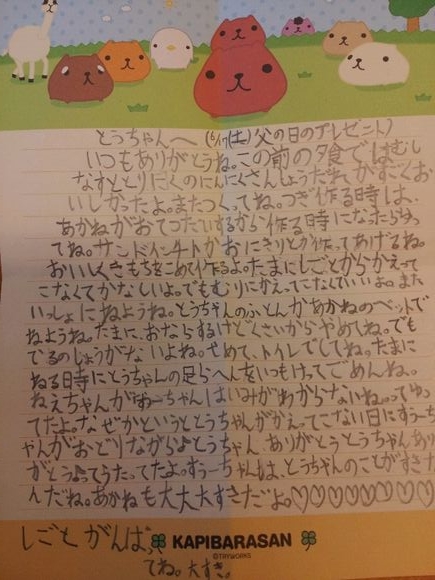 とうちゃんへ(6/17(土)父の日のプレゼント)
いつもありがとうね。この前の夕食ではむし
なすととりにくのにんにくさんしょうだれがすごくお
いしかったよ。またつくってね。つぎ作る時は、
あかねがおてつだいするから作る時になったらゆっ
てね。サンドイッチとかおにぎりとか作ってあげるね。
おいしくきもちをこめて作るよ。たまにしごとからかえって
こなくてかなしいよ。でもむりにかえってこなくていいよ。また
いっしょにねようね。とうちゃんのふとんかあかねのベットで
ねようね。たまに、おならするけどくさいからやめてね。でも
でるのしょうがないよね。せめて、トイレでしてね。たまに
ねる時にとうちゃんの足らへんをいつもけってごめんね。
ねえちゃんが「すぅーちゃんはいみがわからないね。」ってゆっ
てたよ。なぜかというととうちゃんがかえってこない日にすぅーち
ゃんがおどりながら♪とうちゃん ありがとうとうちゃんあり
がとう♪ってうたってたよ。すぅーちゃんも、とうちゃんのことがすきな
んだね。あかねも大大大すきだよ。♡♡♡♡♡♡♡♡
しごとがんばっ
てね。大すき。
KAPIBARASAN
©TRYWORKS